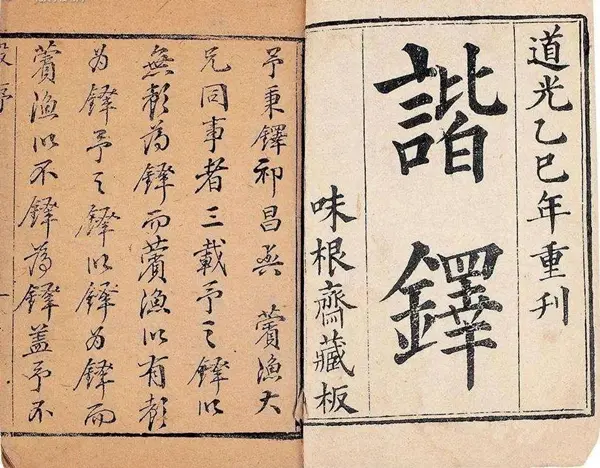 道光乙巳年重刊
諧鐸
味根齋藏板
予秉鐸祁昌與 薲漁大
兄同事者三載予之鐸以
無為鐸而薲漁以有
為鐸予之鐸以鐸為鐸而
薲漁以不鐸為鐸蓋予不